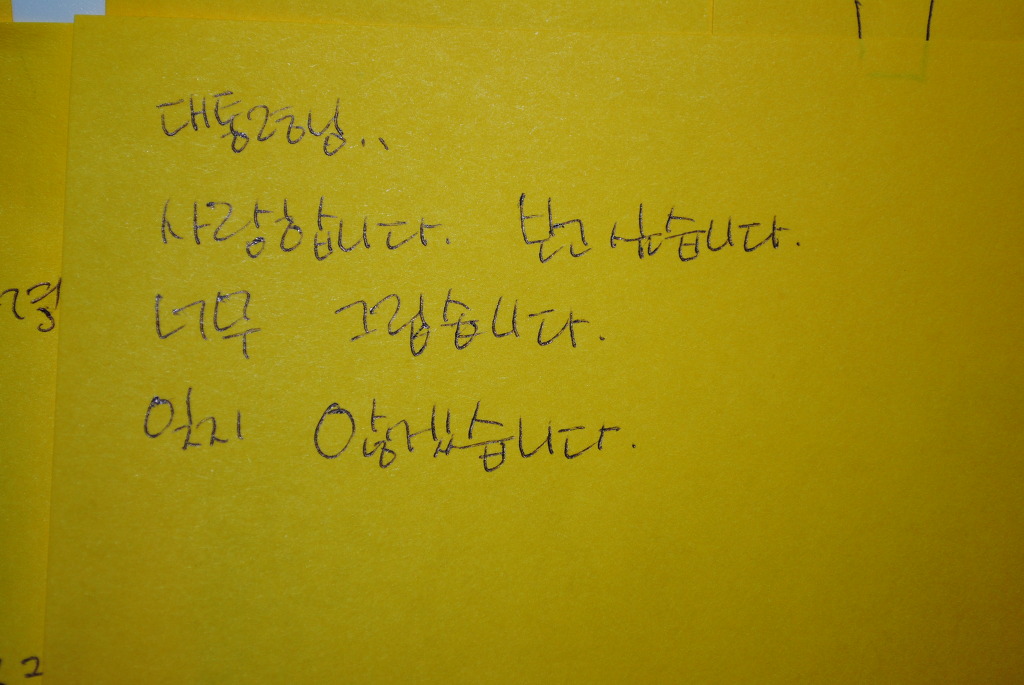 대통령님..
사랑합니다. 보고 싶습니다.
너무 그립습니다.
잊지 않겠습니다.
2